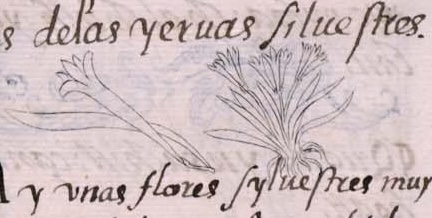 s delas yeruas siluestres.
A y vnas flores syluestres muy